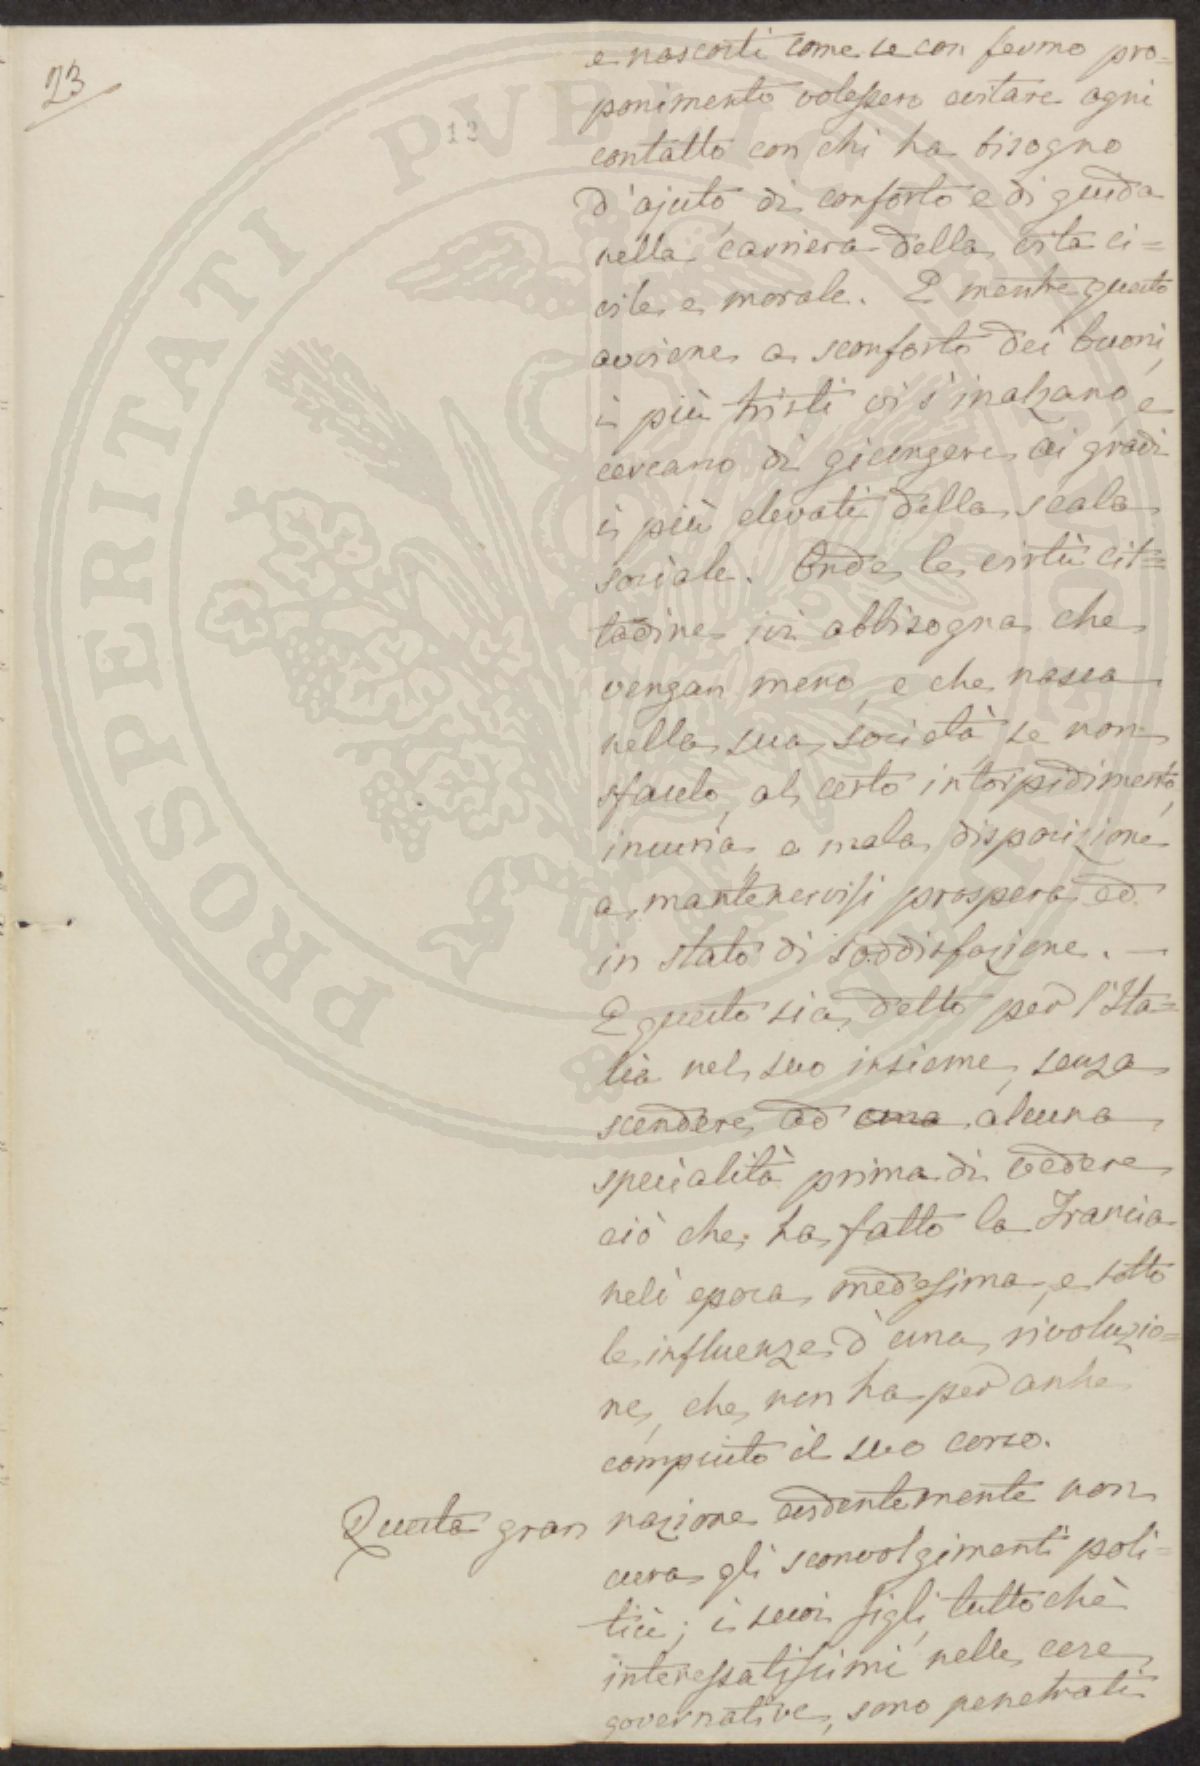 23
12
e nascosti come se con fermo pro=
ponimento volessero evitare ogni
contatto con chi ha bisogno
d'ajuto, di conforto e di guida
nella carriera della vita ci=
vile e morale. E mentre questo
avviene a sconforto dei buoni,
i più tristi vi s'inalzano, e
cercano di giungere ai gradi
i più elevati della scala
sociale. Onde le virtù cit=
tadine ivi abbisogna che
vengan meno, e che nasca
nella sua società se non
sfacelo, al certo intorpidimento,
incuria e mala disposizione
a mantenervisi prospera ed
in stato di soddisfazione. —
E questo sia detto per l'Ita=
lia nel suo insieme, senza
scendere ad una alcuna
specialità prima di vedere
ciò che ha fatto la Francia
nell'epoca medesima, e sotto
le influenze d'una rivoluzio=
ne, che non ha per anche
compiuto il suo corso.
Questa gran nazione evidentemente non
cura gli sconvolgimenti poli=
tici; i suoi figli, tutto chè
interessatissimi nelle cose
governative, sono penetrati
PROSPERITATI PVBLICAE